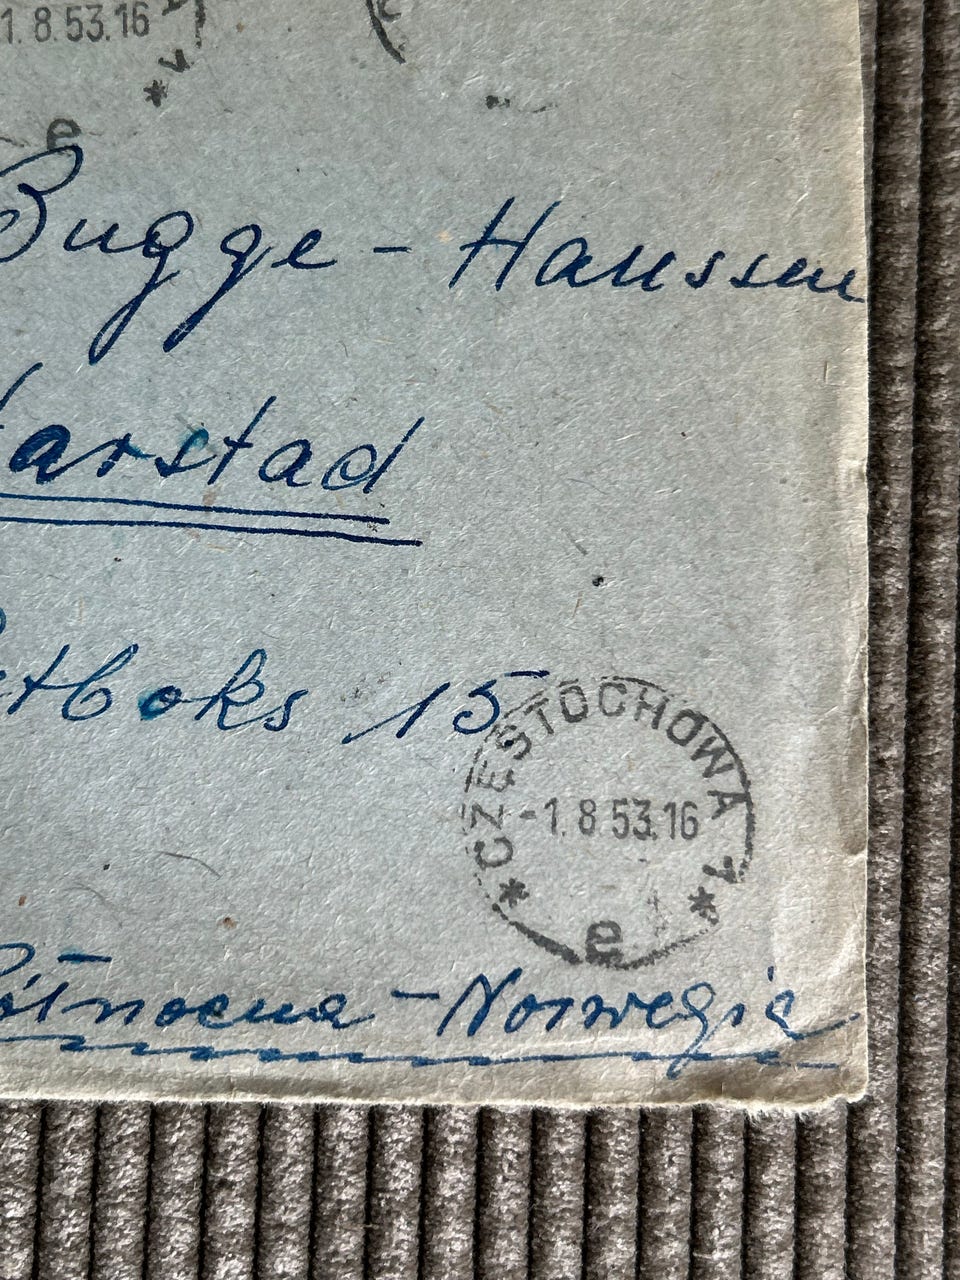 1. 8.53.16
e
Bugge - Hanssen
arstad
tboks 15
CZĘSTOCHOWA 7
-1. 8.53.16
e
ółnocna - Norwegia